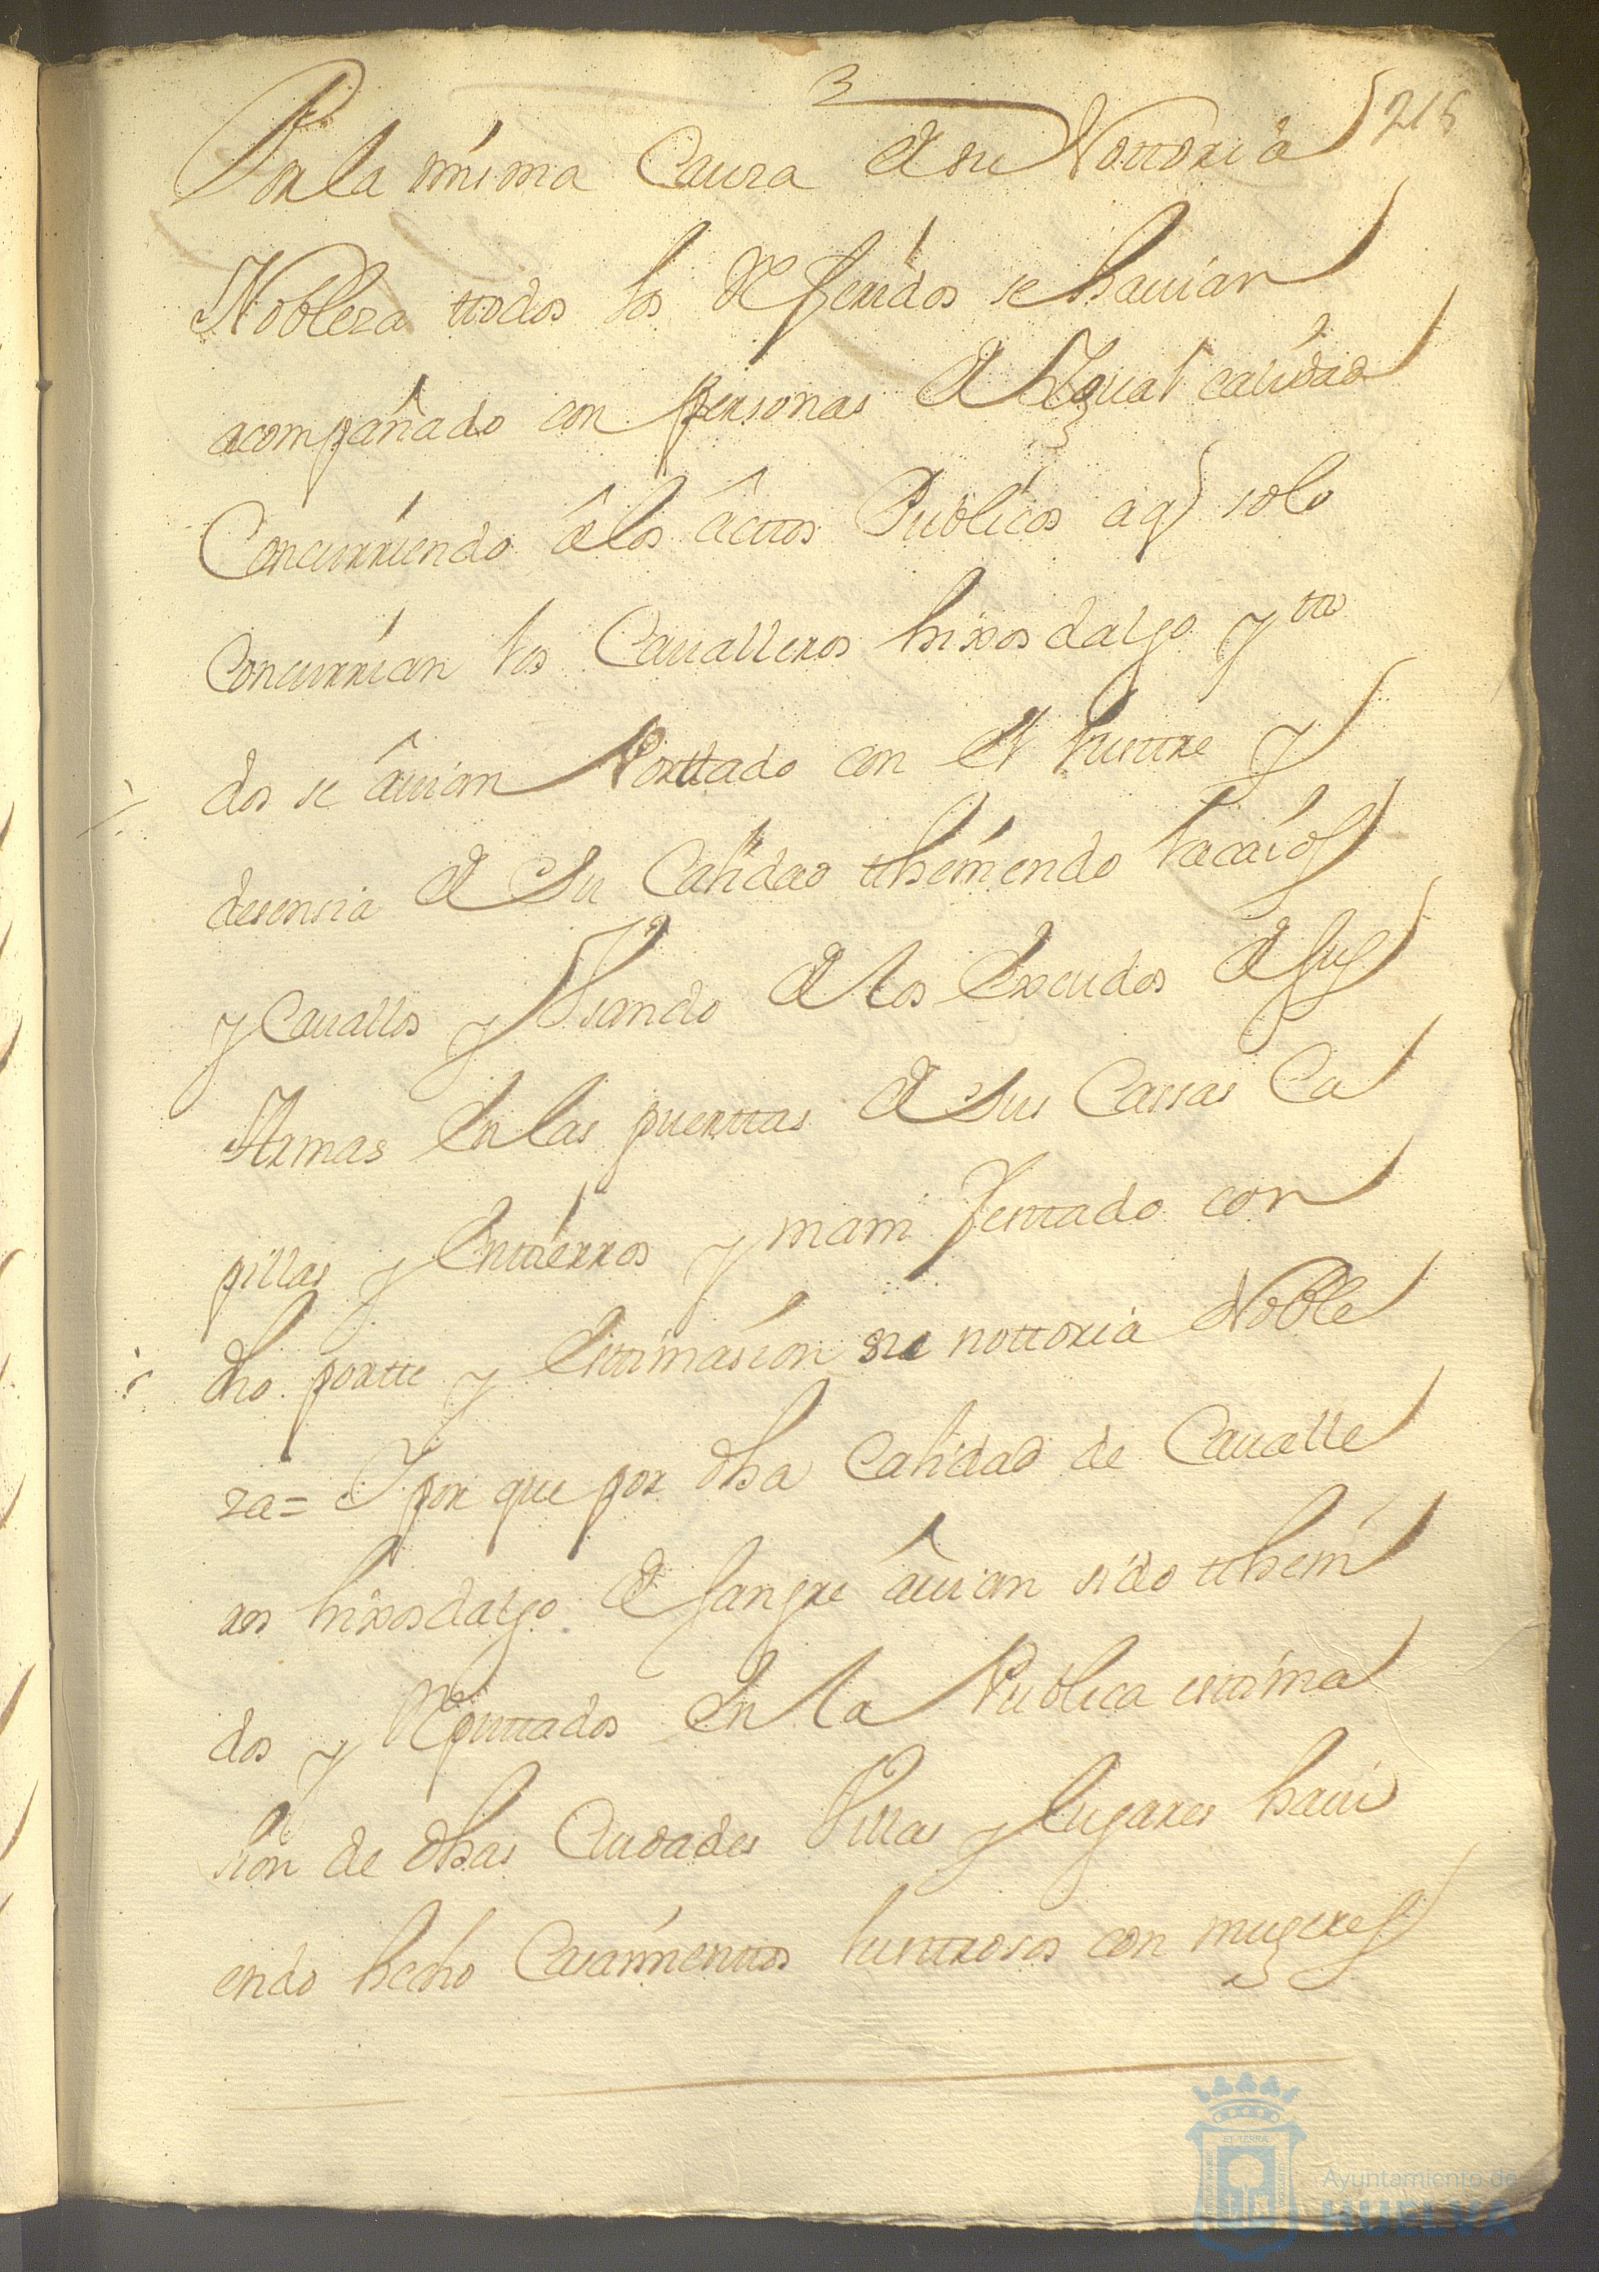 3
215
Por la misma Causa de su Nottoria
Nobleza ttodos los Referidos se hauian
acompañado con personas de Ygual calidad
Concurriendo â los âcttos Publicos a q solo
Concurrian los Caualleros hixosdalgo y tto
dos se âuian Porttado con el lusttre y
desensia de su Calidad ttheniendo lacaios
y Cauallos y Vsando de los Escudos de sus
Armas En las puerttas de sus Cassas Ca
pillas y Enttierros y mani festtado con
dho portte y Esttimasion su nottoria Noble
za = Y por que por dha Calidad de Caualle
ros hixosdalgo de sangre âuian sido ttheni
dos y Reputtados En la Publica esttima
sion de dhas Ciudades Villas y lugares haui
endo hecho Casamienttos lusttrosos con mugeres
Ayuntamiento de
HUELVA